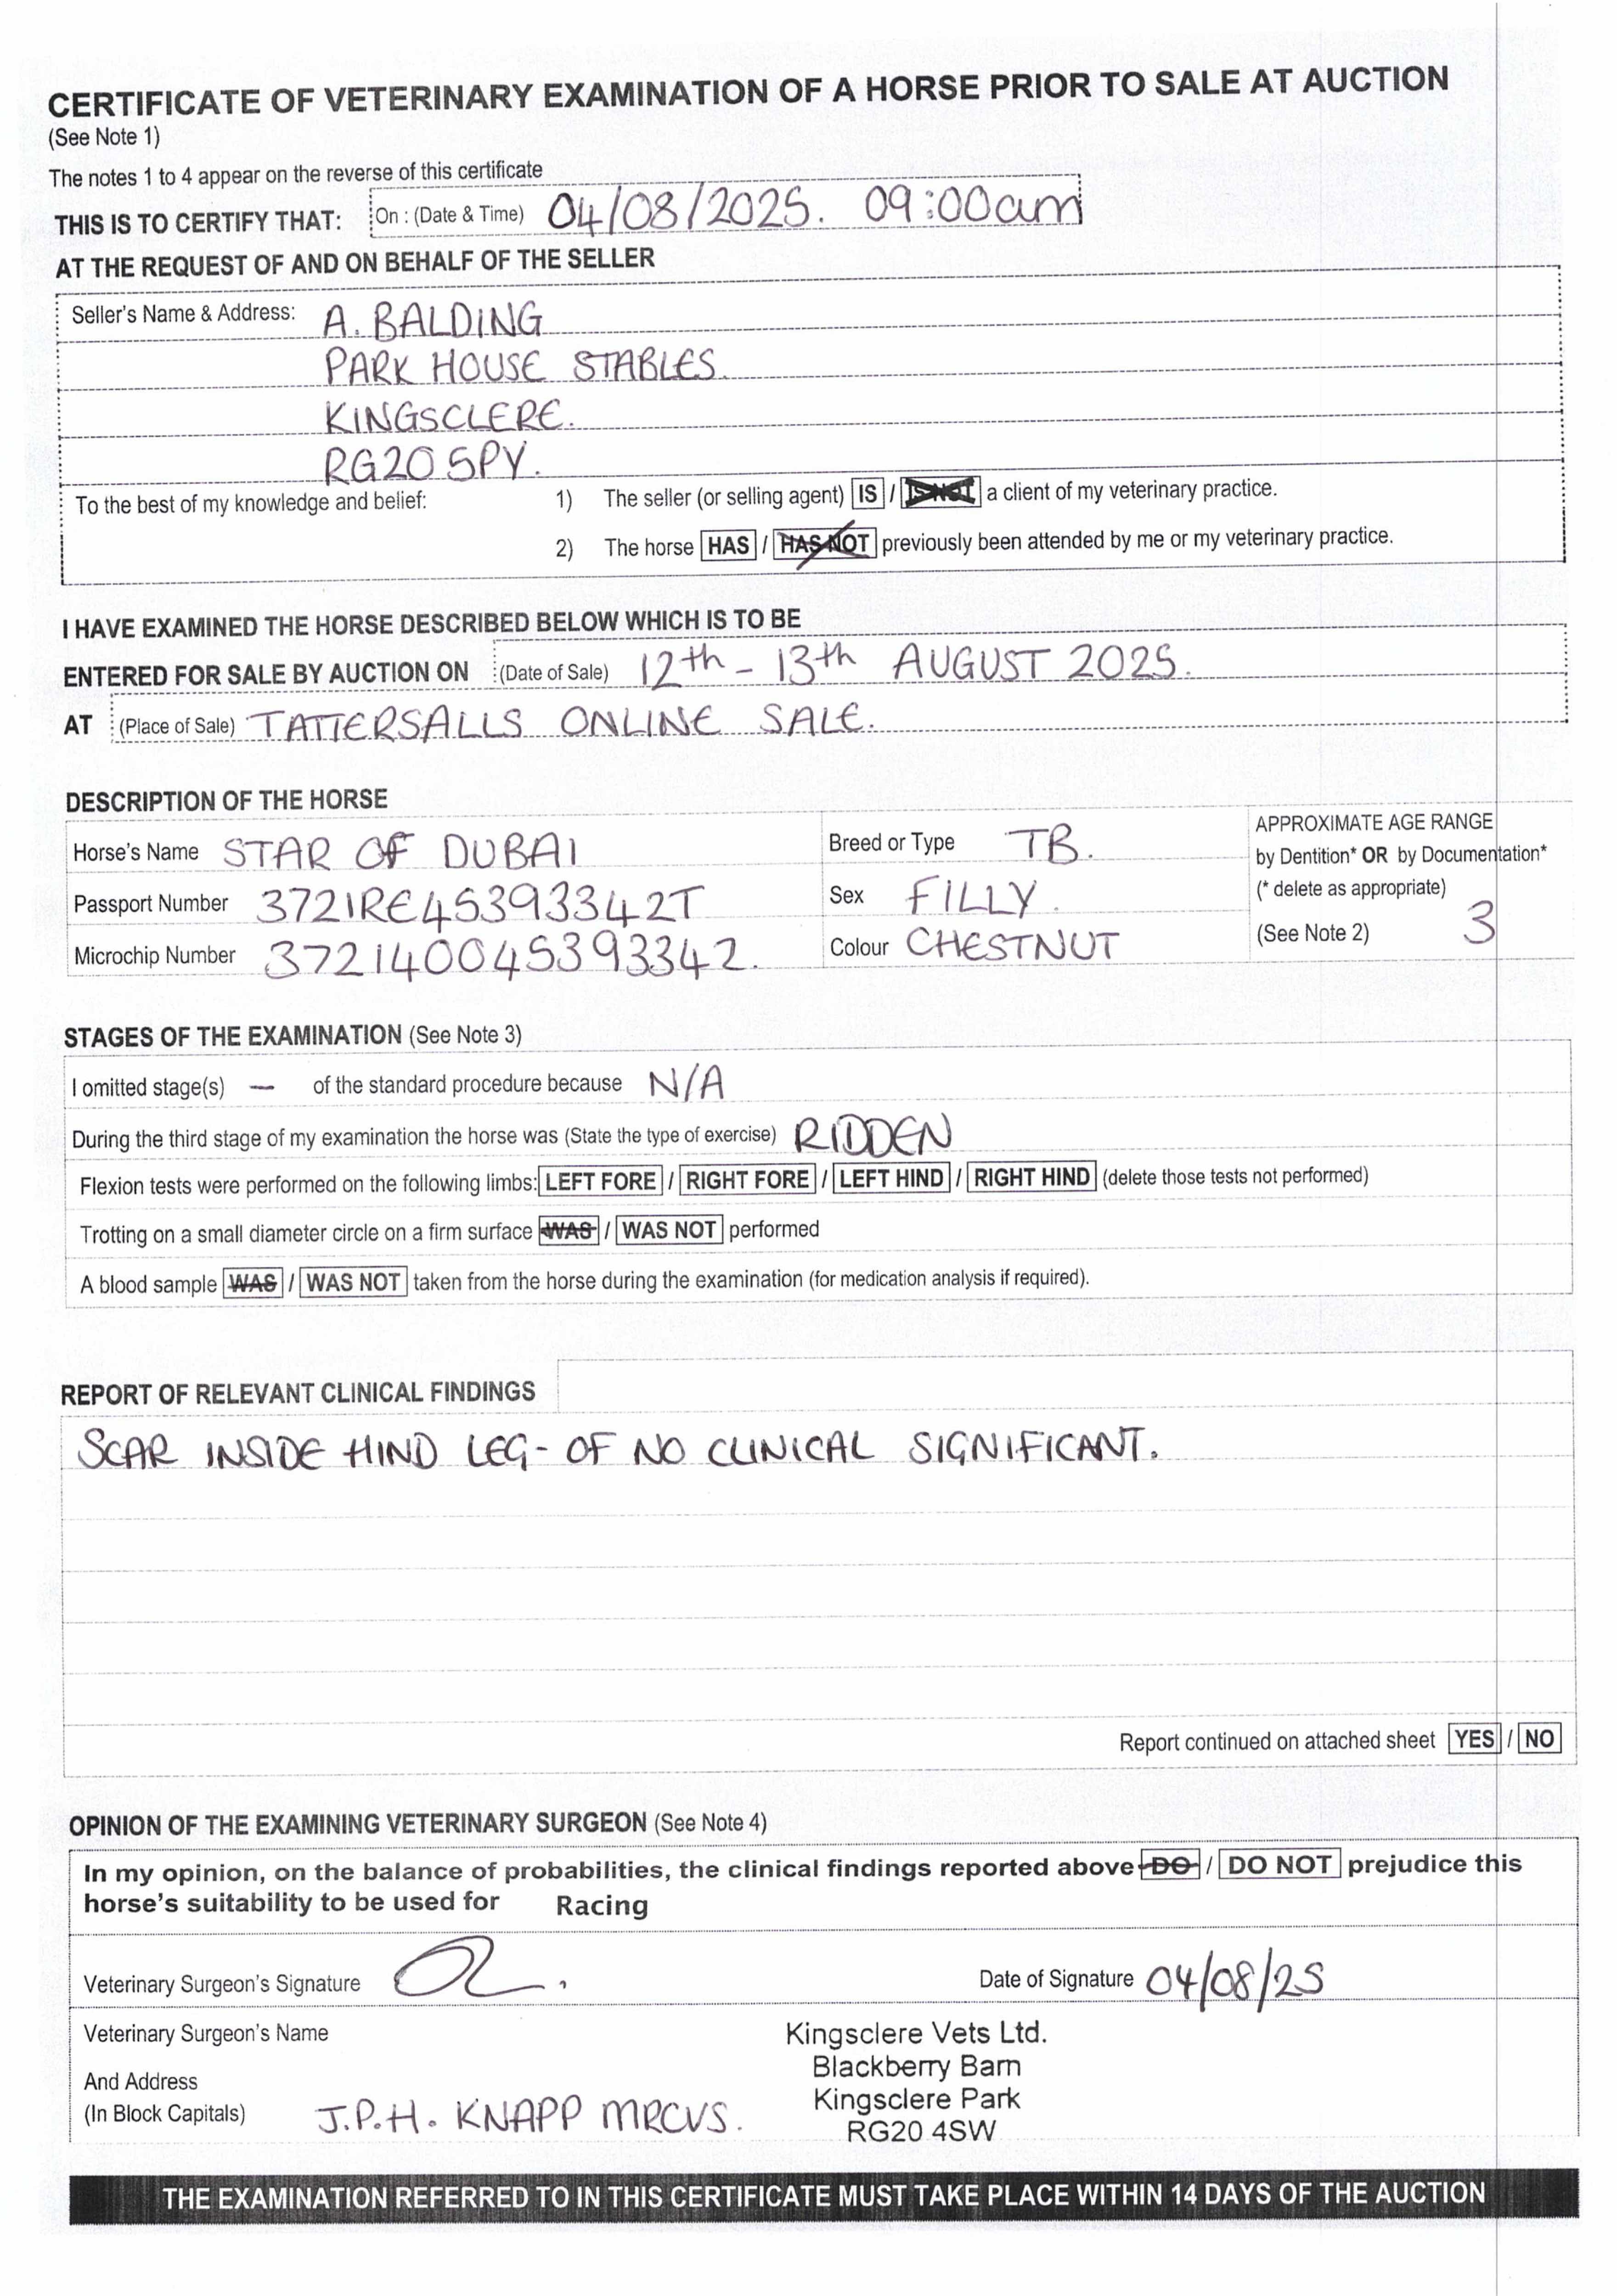 CERTIFICATE OF VETERINARY EXAMINATION OF A HORSE PRIOR TO SALE AT AUCTION
(See Note 1)
The notes 1 to 4 appear on the reverse of this certificate
THIS IS TO CERTIFY THAT: On : (Date & Time) 04/08/2025. 09:00am
AT THE REQUEST OF AND ON BEHALF OF THE SELLER
Seller's Name & Address: A. BALDING
PARK HOUSE STABLES.
KINGSCLERE.
RG20 5PY.
To the best of my knowledge and belief: 1) The seller (or selling agent) IS / IS NOT a client of my veterinary practice.
2) The horse HAS / HAS NOT previously been attended by me or my veterinary practice.
I HAVE EXAMINED THE HORSE DESCRIBED BELOW WHICH IS TO BE
ENTERED FOR SALE BY AUCTION ON (Date of Sale) 12th - 13th AUGUST 2025.
AT (Place of Sale) TATTERSALLS ONLINE SALE.
DESCRIPTION OF THE HORSE
Horse's Name STAR OF DUBAI Breed or Type TB. APPROXIMATE AGE RANGE
by Dentition* OR by Documentation*
Passport Number 372IRE45393342T Sex FILLY. (* delete as appropriate)
Microchip Number 372140045393342. Colour CHESTNUT (See Note 2) 3
STAGES OF THE EXAMINATION (See Note 3)
I omitted stage(s) — of the standard procedure because N/A
During the third stage of my examination the horse was (State the type of exercise) RIDDEN
Flexion tests were performed on the following limbs: LEFT FORE / RIGHT FORE / LEFT HIND / RIGHT HIND (delete those tests not performed)
Trotting on a small diameter circle on a firm surface WAS / WAS NOT performed
A blood sample WAS / WAS NOT taken from the horse during the examination (for medication analysis if required).
REPORT OF RELEVANT CLINICAL FINDINGS
SCAR INSIDE HIND LEG - OF NO CLINICAL SIGNIFICANT.
Report continued on attached sheet YES / NO
OPINION OF THE EXAMINING VETERINARY SURGEON (See Note 4)
In my opinion, on the balance of probabilities, the clinical findings reported above DO / DO NOT prejudice this
horse's suitability to be used for Racing
Veterinary Surgeon's Signature Date of Signature 04/08/25
Veterinary Surgeon's Name Kingsclere Vets Ltd.
Blackberry Barn
And Address Kingsclere Park
(In Block Capitals) J.P.H. KNAPP MRCVS. RG20 4SW
THE EXAMINATION REFERRED TO IN THIS CERTIFICATE MUST TAKE PLACE WITHIN 14 DAYS OF THE AUCTION